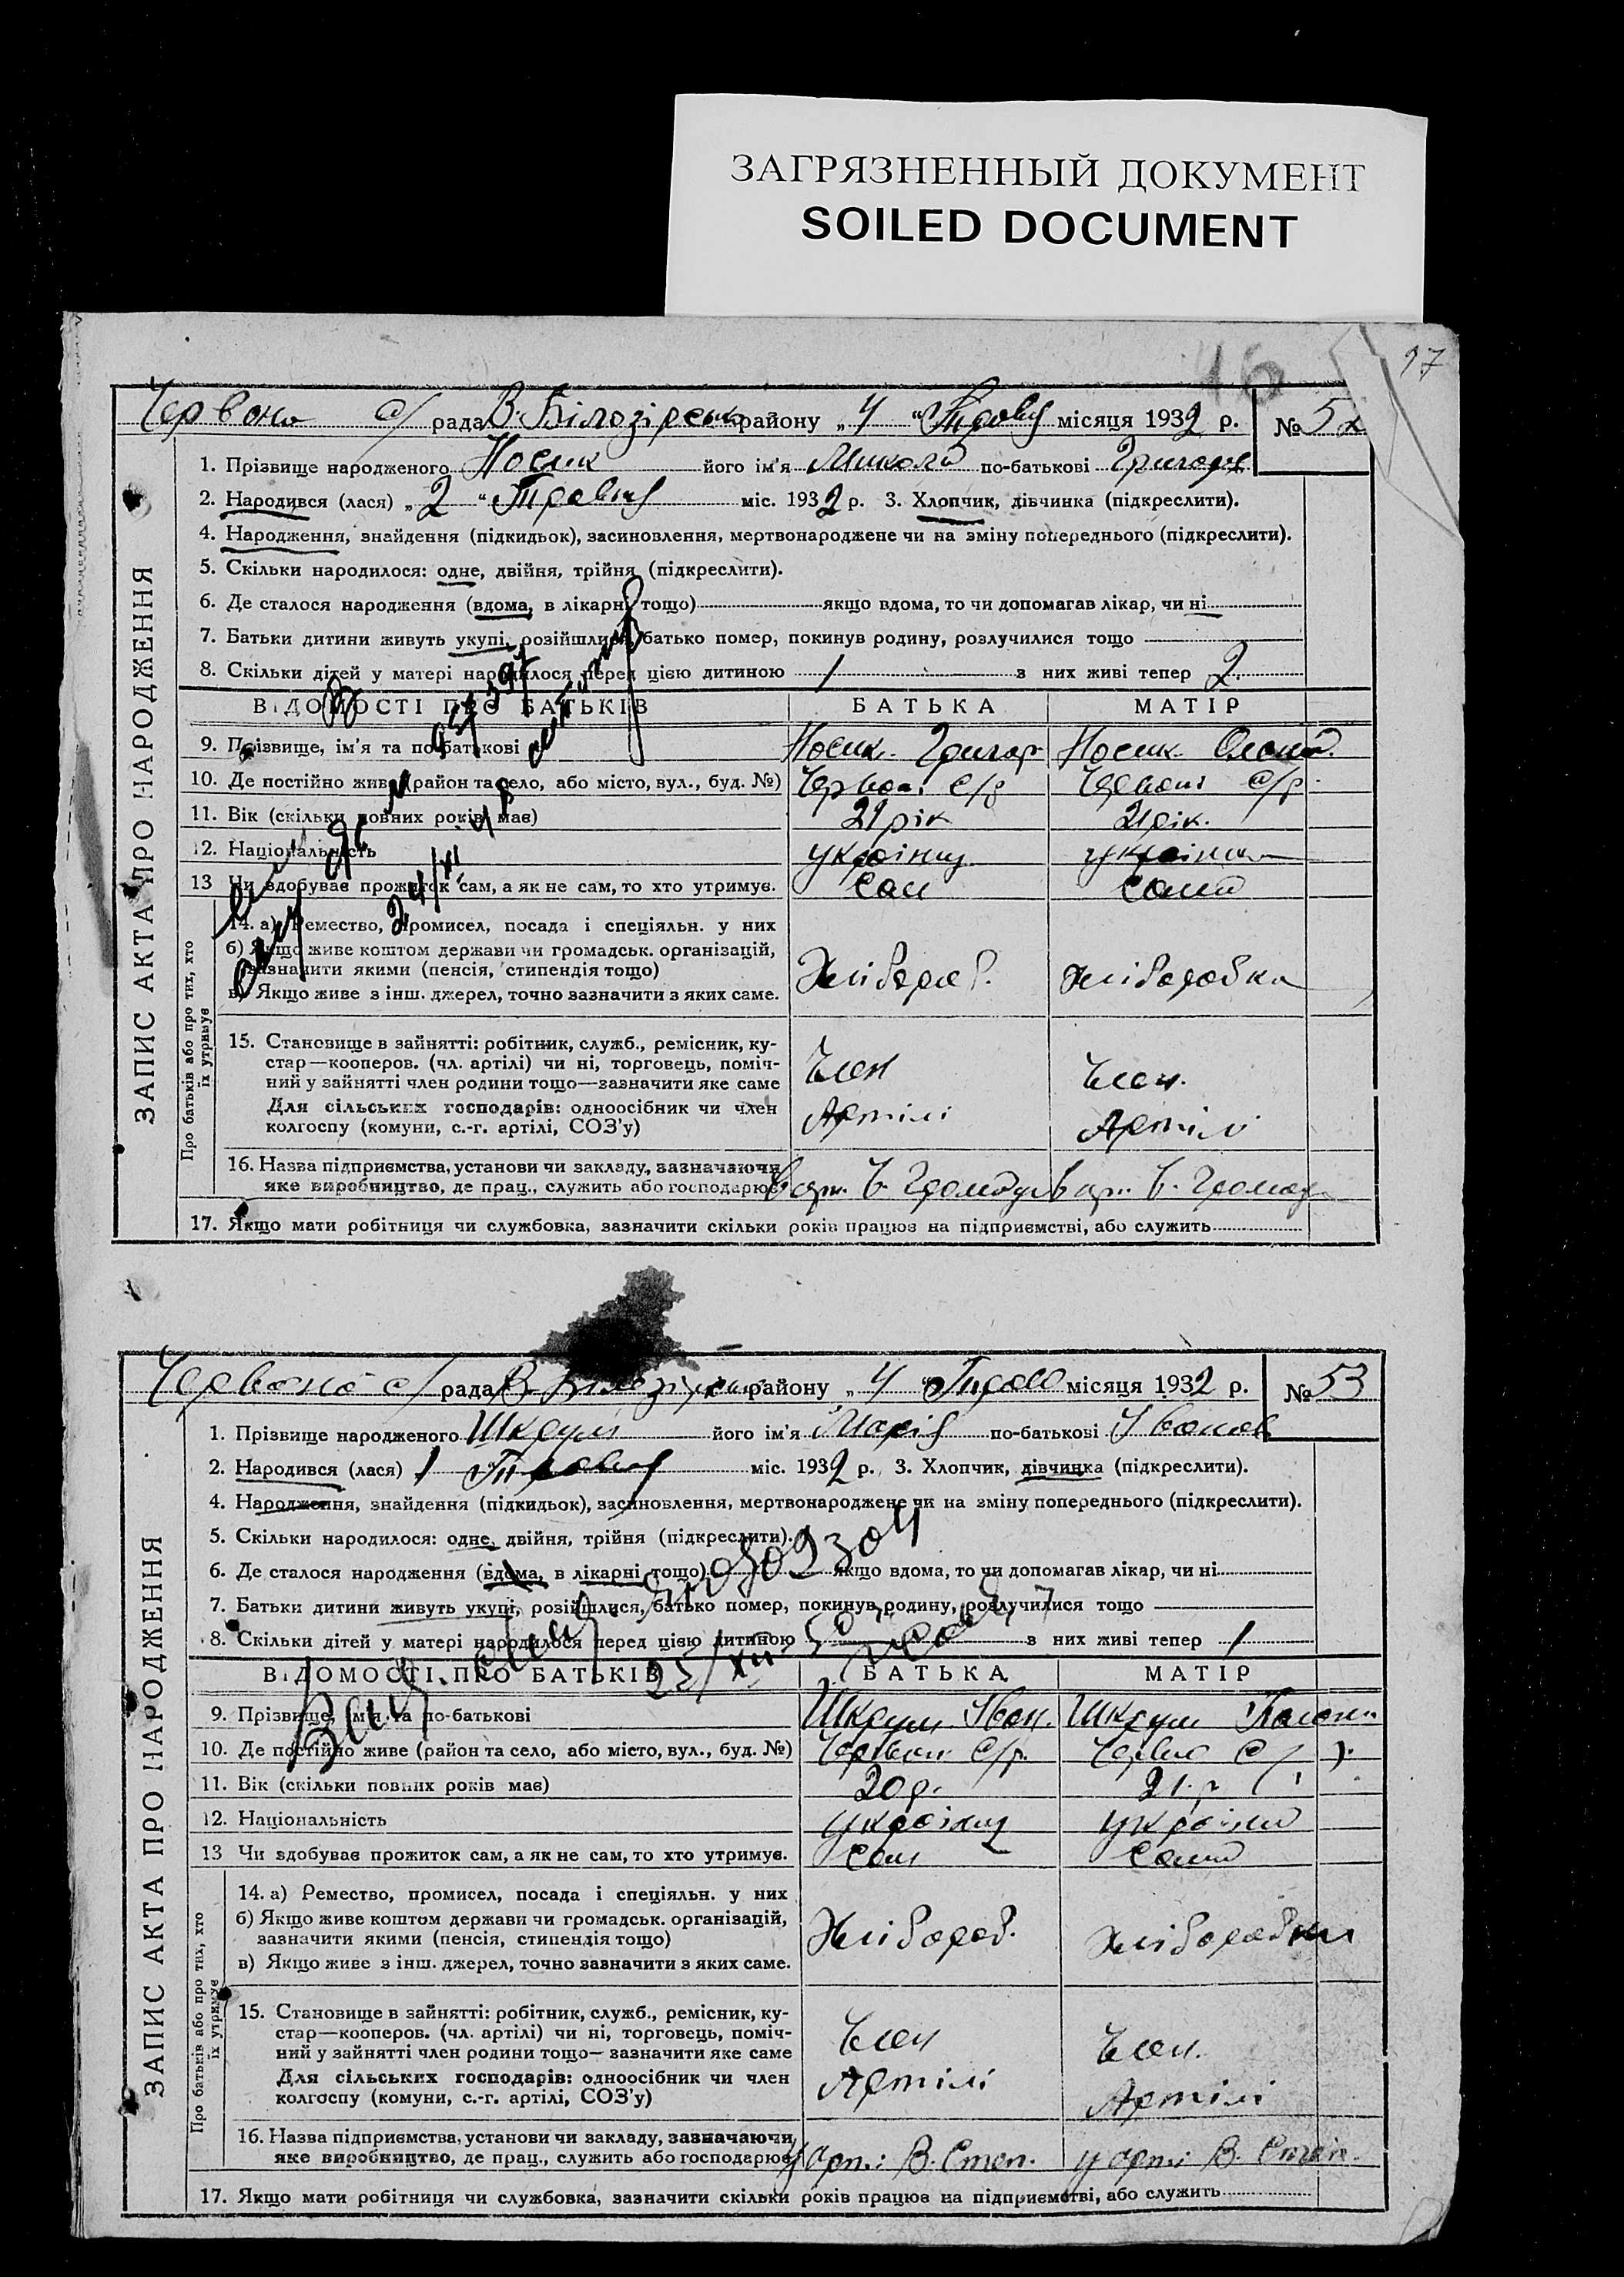 ЗАГРЯЗНЕННЫЙ ДОКУМЕНТ
SOILED DOCUMENT
16
97
Червона с/ рада В. Білозірськ району „4“ Травня місяця 1932 р. № 52
ЗАПИС АКТА ПРО НАРОДЖЕННЯ
1. Прізвище народженого Носик його ім'я Микола по-батькові Григоров
2. Народився (лася) „2“ Травня міс. 1932 р. 3. Хлопчик, дівчинка (підкреслити).
4. Народження, знайдення (підкидьок), засиновлення, мертвонароджене чи на зміну попереднього (підкреслити).
5. Скільки народилося: одне, двійня, трійня (підкреслити).
6. Де сталося народження (вдома, в лікарні тощо) якщо вдома, то чи допомагав лікар, чи ні
7. Батьки дитини живуть укупі, розійшлися, батько помер, покинув родину, розлучилися тощо
8. Скільки дітей у матері народилося перед цією дитиною 1 з них живі тепер 2.
ВІДОМОСТІ ПРО БАТЬКІВ БАТЬКА МАТІР
9. Прізвище, ім'я та по-батькові Носик Григор Носик
10. Де постійно живе (район та село, або місто, вул., буд. №) Червона с/р Червона с/р
11. Вік (скільки повних років має) 21 рік 21 рік.
12. Національність українц українка
13 Чи здобуває прожиток сам, а як не сам, то хто утримує. Сам Сама
24/XI 48
Про батьків або про тих, хто їх утримує
14. а) Ремество, промисел, посада і спеціяльн. у них
б) Якщо живе коштом держави чи громадськ. організацій,
зазначити якими (пенсія, стипендія тощо) Хлібороб. Хліборобка
в) Якщо живе з інш. джерел, точно зазначити з яких саме.
15. Становище в зайнятті: робітник, служб., ремісник, ку-
стар—кооперов. (чл. артілі) чи ні, торговець, поміч- Член Член.
ний у зайнятті член родини тощо—зазначити яке саме
Для сільських господарів: одноосібник чи член Артілі Артілі
колгоспу (комуни, с.-г. артілі, СОЗ'у)
16. Назва підприємства, установи чи закладу, зазначаючи
яке виробництво, де прац., служить або господарює В арт. Ч. Громад В арт. Ч. Громад
17. Якщо мати робітниця чи службовка, зазначити скільки років працює на підприємстві, або служить
Червона с/ рада В. Білозірськ району „4“ Травн місяця 1932 р. № 53
ЗАПИС АКТА ПРО НАРОДЖЕННЯ
1. Прізвище народженого Шкрум його ім'я Марія по-батькові Іванов
2. Народився (лася) 1 Травня міс. 1932 р. 3. Хлопчик, дівчинка (підкреслити).
4. Народження, знайдення (підкидьок), засиновлення, мертвонароджене чи на зміну попереднього (підкреслити).
5. Скільки народилося: одне, двійня, трійня (підкреслити).
6. Де сталося народження (вдома, в лікарні тощо) якщо вдома, то чи допомагав лікар, чи ні
7. Батьки дитини живуть укупі, розійшлися, батько помер, покинув родину, розлучилися тощо
8. Скільки дітей у матері народилося перед цією дитиною з них живі тепер 1
ВІДОМОСТІ ПРО БАТЬКІВ БАТЬКА МАТІР
9. Прізвище, ім'я та по-батькові Шкрум Іван. Шкрум
10. Де постійно живе (район та село, або місто, вул., буд. №) Червона с/р. Червона с/р.
11. Вік (скільки повних років має) 20 р. 21. р
12. Національність українц українка
13 Чи здобуває прожиток сам, а як не сам, то хто утримує. Сам Сама
Про батьків або про тих, хто їх утримує
14. а) Ремество, промисел, посада і спеціяльн. у них
б) Якщо живе коштом держави чи громадськ. організацій,
зазначити якими (пенсія, стипендія тощо) Хлібороб. Хліборобка
в) Якщо живе з інш. джерел, точно зазначити з яких саме.
15. Становище в зайнятті: робітник, служб., ремісник, ку-
стар—кооперов. (чл. артілі) чи ні, торговець, поміч- Член Член.
ний у зайнятті член родини тощо—зазначити яке саме
Для сільських господарів: одноосібник чи член Артілі Артілі
колгоспу (комуни, с.-г. артілі, СОЗ'у)
16. Назва підприємства, установи чи закладу, зазначаючи
яке виробництво, де прац., служить або господарює У арт. В. Степ. У арт. В. Степ.
17. Якщо мати робітниця чи службовка, зазначити скільки років працює на підприємстві, або служить